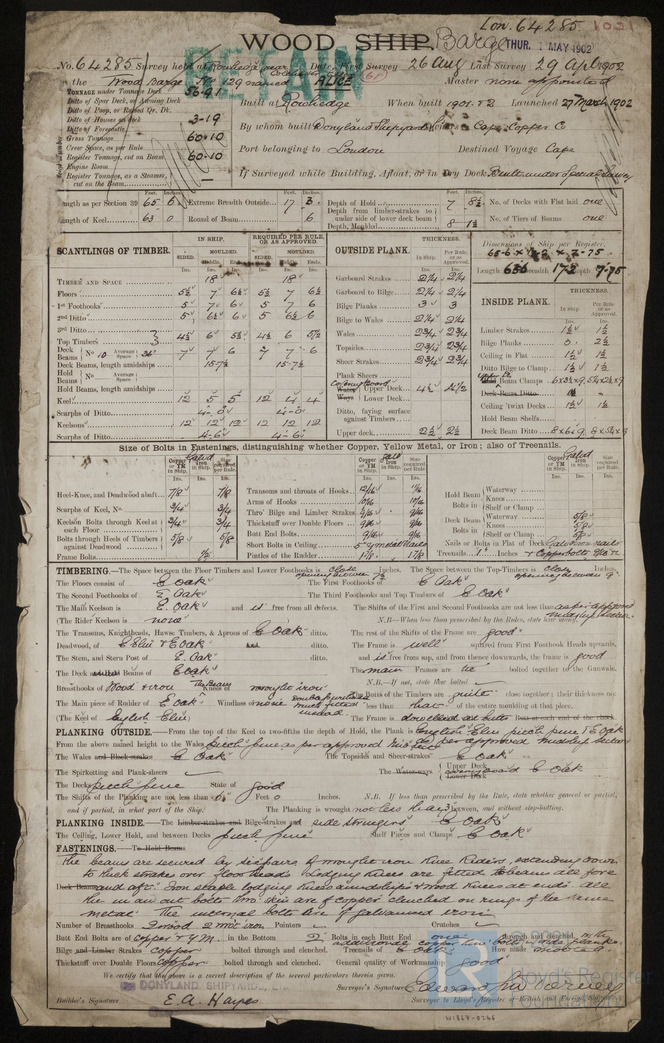 Lon. 64285
WOOD SHIP. Barge
THUR. 1 MAY 1902
RETAIN
No. 64285 Survey held at Rowhedge near Colchester Date, First Survey 26 Aug Last Survey 29 Apl 1902
on the Wood Barge No 129 named ALICE Master none appointed
TONNAGE under Tonnage Deck 56.91
Ditto of Spar Deck, or Awning Deck
Ditto of Poop, or Raised Qr. Dk.
Ditto of Houses on deck 3.19
Ditto of Forecastle
Gross Tonnage 60.10
Crew Space, as per Rule
Register Tonnage, cut on Beam 60.10
Engine Room
Register Tonnage, as a Steamer, cut on the Beam
Built at Rowhedge When built 1901.02 Launched 27 March 1902
By whom built Donyland Shipyard Owners Cape Copper Co
Port belonging to London Destined Voyage Cape
If Surveyed while Building, Afloat, or in Dry Dock Built under Special Survey
Length as per Section 39 65 6 Extreme Breadth Outside 17 3 Depth of Hold 7 8½ No. of Decks with Flat laid one
Length of Keel 63 0 Round of Beam 6 Depth from limber-strakes to under side of lower deck beam No. of Tiers of Beams one
Depth, Moulded 8 1½
Dimensions of Ship per Register,
Length 65.6 breadth 17.2 depth 7.75
SCANTLINGS OF TIMBER.
IN SHIP. REQUIRED PER RULE, OR AS APPROVED.
SIDED. MOULDED. SIDED. MOULDED.
TIMBER AND SPACE 18" 18"
Floors 5½ 7 6½ 5½ 7 6½
1st Foothooks 5 7 6 5 7 6
2nd Ditto 5 6½ 6 5 6½ 6
3rd Ditto
Top Timbers 4½ 6 5½ 4½ 6 5½
Deck Beams No 10 Average Space 36" 7 7 6 7 7 6
Deck Beams, length amidships 15-7½ 15-7½
Hold Beams No Average Space
Hold Beams, length amidships
Keel 12 5 5 12 4 4
Scarphs of Ditto 4-0 4-0
Keelsons 12 12 12 12 12 12
Scarphs of Ditto 4-6 4-6
OUTSIDE PLANK. THICKNESS.
In Ship. Per Rule or as approved.
Garboard Strakes 2¼ 2¼
Garboard to Bilge 2¼ 2¼
Bilge Planks 3 3
Bilge to Wales 2¼ 2¼
Wales 2¾ 2¾
Topsides 2¾ 2¾
Sheer Strakes 2¾ 2¾
Plank Sheers
Covering Board Upper Deck 4½ 4½
Ways Lower Deck
Ditto, laying surface against Timbers
Upper deck 2½ 2½
INSIDE PLANK. THICKNESS.
Limber Strakes 1½ 1½
Bilge Planks 0 2½
Ceiling in Flat 1½ 1½
Ditto Bilge to Clamp 1½ 1½
Beam Clamps
Deck Beam Ditto
Ceiling 'twixt Decks 1½ 1½
Hold Beam Shelfs
Deck Beam Ditto
Size of Bolts in Fastenings, distinguishing whether Copper, Yellow Metal, or Iron; also of Treenails.
Heel-Knee, and Deadwood abaft 7/8 7/8
Scarphs of Keel, No 3/4 3/4
Keelson Bolts through Keel at each Floor 3/4 3/4
Bolts through Heels of Timbers against Deadwood 5/8 5/8
Frame Bolts
Transoms and throats of Hooks
Arms of Hooks 10/16 10/16
Thro' Bilge and Limber Strakes 9/16 9/16
Thickstuff over Double Floors 9/16 9/16
Butt End Bolts 9/16 9/16
Short Bolts in Ceiling
Pintles of the Rudder
Hold Beam Bolts in Waterway Knees Shelf or Clamp
Deck Beam Bolts in Waterway 5/8 Knees 5/8 Shelf or Clamp 5/8
Nails or Bolts in Flat of Deck Galvanised nails
Treenails 1" Inches + Copper bolts
TIMBERING.—The Space between the Floor Timbers and Lower Foothooks is close Inches. The Space between the Top-Timbers is close Inches
The Floors consist of E Oak The First Foothooks of E Oak
The Second Foothooks of E Oak The Third Foothooks and Top Timbers of E Oak
The Main Keelson is E. Oak and is free from all defects. The Shifts of the First and Second Foothooks are not less than as per approved midship section
(The Rider Keelson is none N.B.—When less than prescribed by the Rules, state how many.
The Transoms, Knightheads, Hawse Timbers, & Aprons of E Oak ditto. The rest of the Shifts of the Frame are good
Deadwood, of E Elm & E Oak ditto. The Frame is well squared from First Foothook Heads upwards,
The Stem, and Stern Post of E. Oak ditto. and is free from sap, and from thence downwards, the frame is good
The Deck Beams of E oak The main Frames are bolted together to the Gunwale.
Breasthooks of Wood & iron The Beam Knees of wrought iron N.B.—If not, state how bolted
The Main piece of Rudder of E Oak Windlass of none The Butts of the Timbers are quite close together; their thickness not less than that of the entire moulding at that place.
(The Keel of English Elm The Frame is dowelled at butts
PLANKING OUTSIDE.—From the top of the Keel to two-fifths the depth of Hold, the Plank is English Elm pitch pine & E Oak
From the above named height to the Wales pitch pine as per approved midship section
The Wales E Oak The Topsides and Sheer-strakes E Oak
The Spirketting and Plank-sheers The Waterways Upper Deck covering board E Oak Lower Deck
The Decks pitch pine State of good
The Shifts of the Planking are not less than 6 Feet 0 Inches. N.B. If less than prescribed by the Rule, state whether general or partial,
and if partial, in what part of the Ship. The Planking is wrought not less than between, and without step-butting.
PLANKING INSIDE.—The Limber-strakes and Bilge-strakes and side stringers E Oak
The Ceiling, Lower Hold, and between Decks pitch pine Shelf Pieces and Clamps E Oak
FASTENINGS.—To Hold Beams
The beams are secured by six pairs of wrought iron knee Riders, extending down
to thick strakes over floor heads Lodging knees are fitted to beams ate fore
Deck Beams and aft. Iron staple lodging knees amidships & wood knees at ends all
the in & out bolts thro' skin are of copper clenched on rings of the same
metal. The internal bolts are of galvanised iron
Number of Breasthooks 2 wood 2 wrt iron Pointers Crutches
Butt End Bolts are of Copper & Y.M. in the Bottom 2 Bolts in each Butt End one through and clenched,
Bilge and Limber Strakes Copper bolted through and clenched. Treenails of E Oak How made
Thickstuff over Double Floors Copper bolted through and clenched. General quality of Workmanship good
We certify that the above is a correct description of the several particulars therein given.
DONYLAND SHIPYARDS, LTD.
Builder's Signature E. A. Hayes
Surveyor's Signature
Surveyor to Lloyd's Register of British and Foreign Shipping
Lloyd's Register
Foundation
W1867-0266